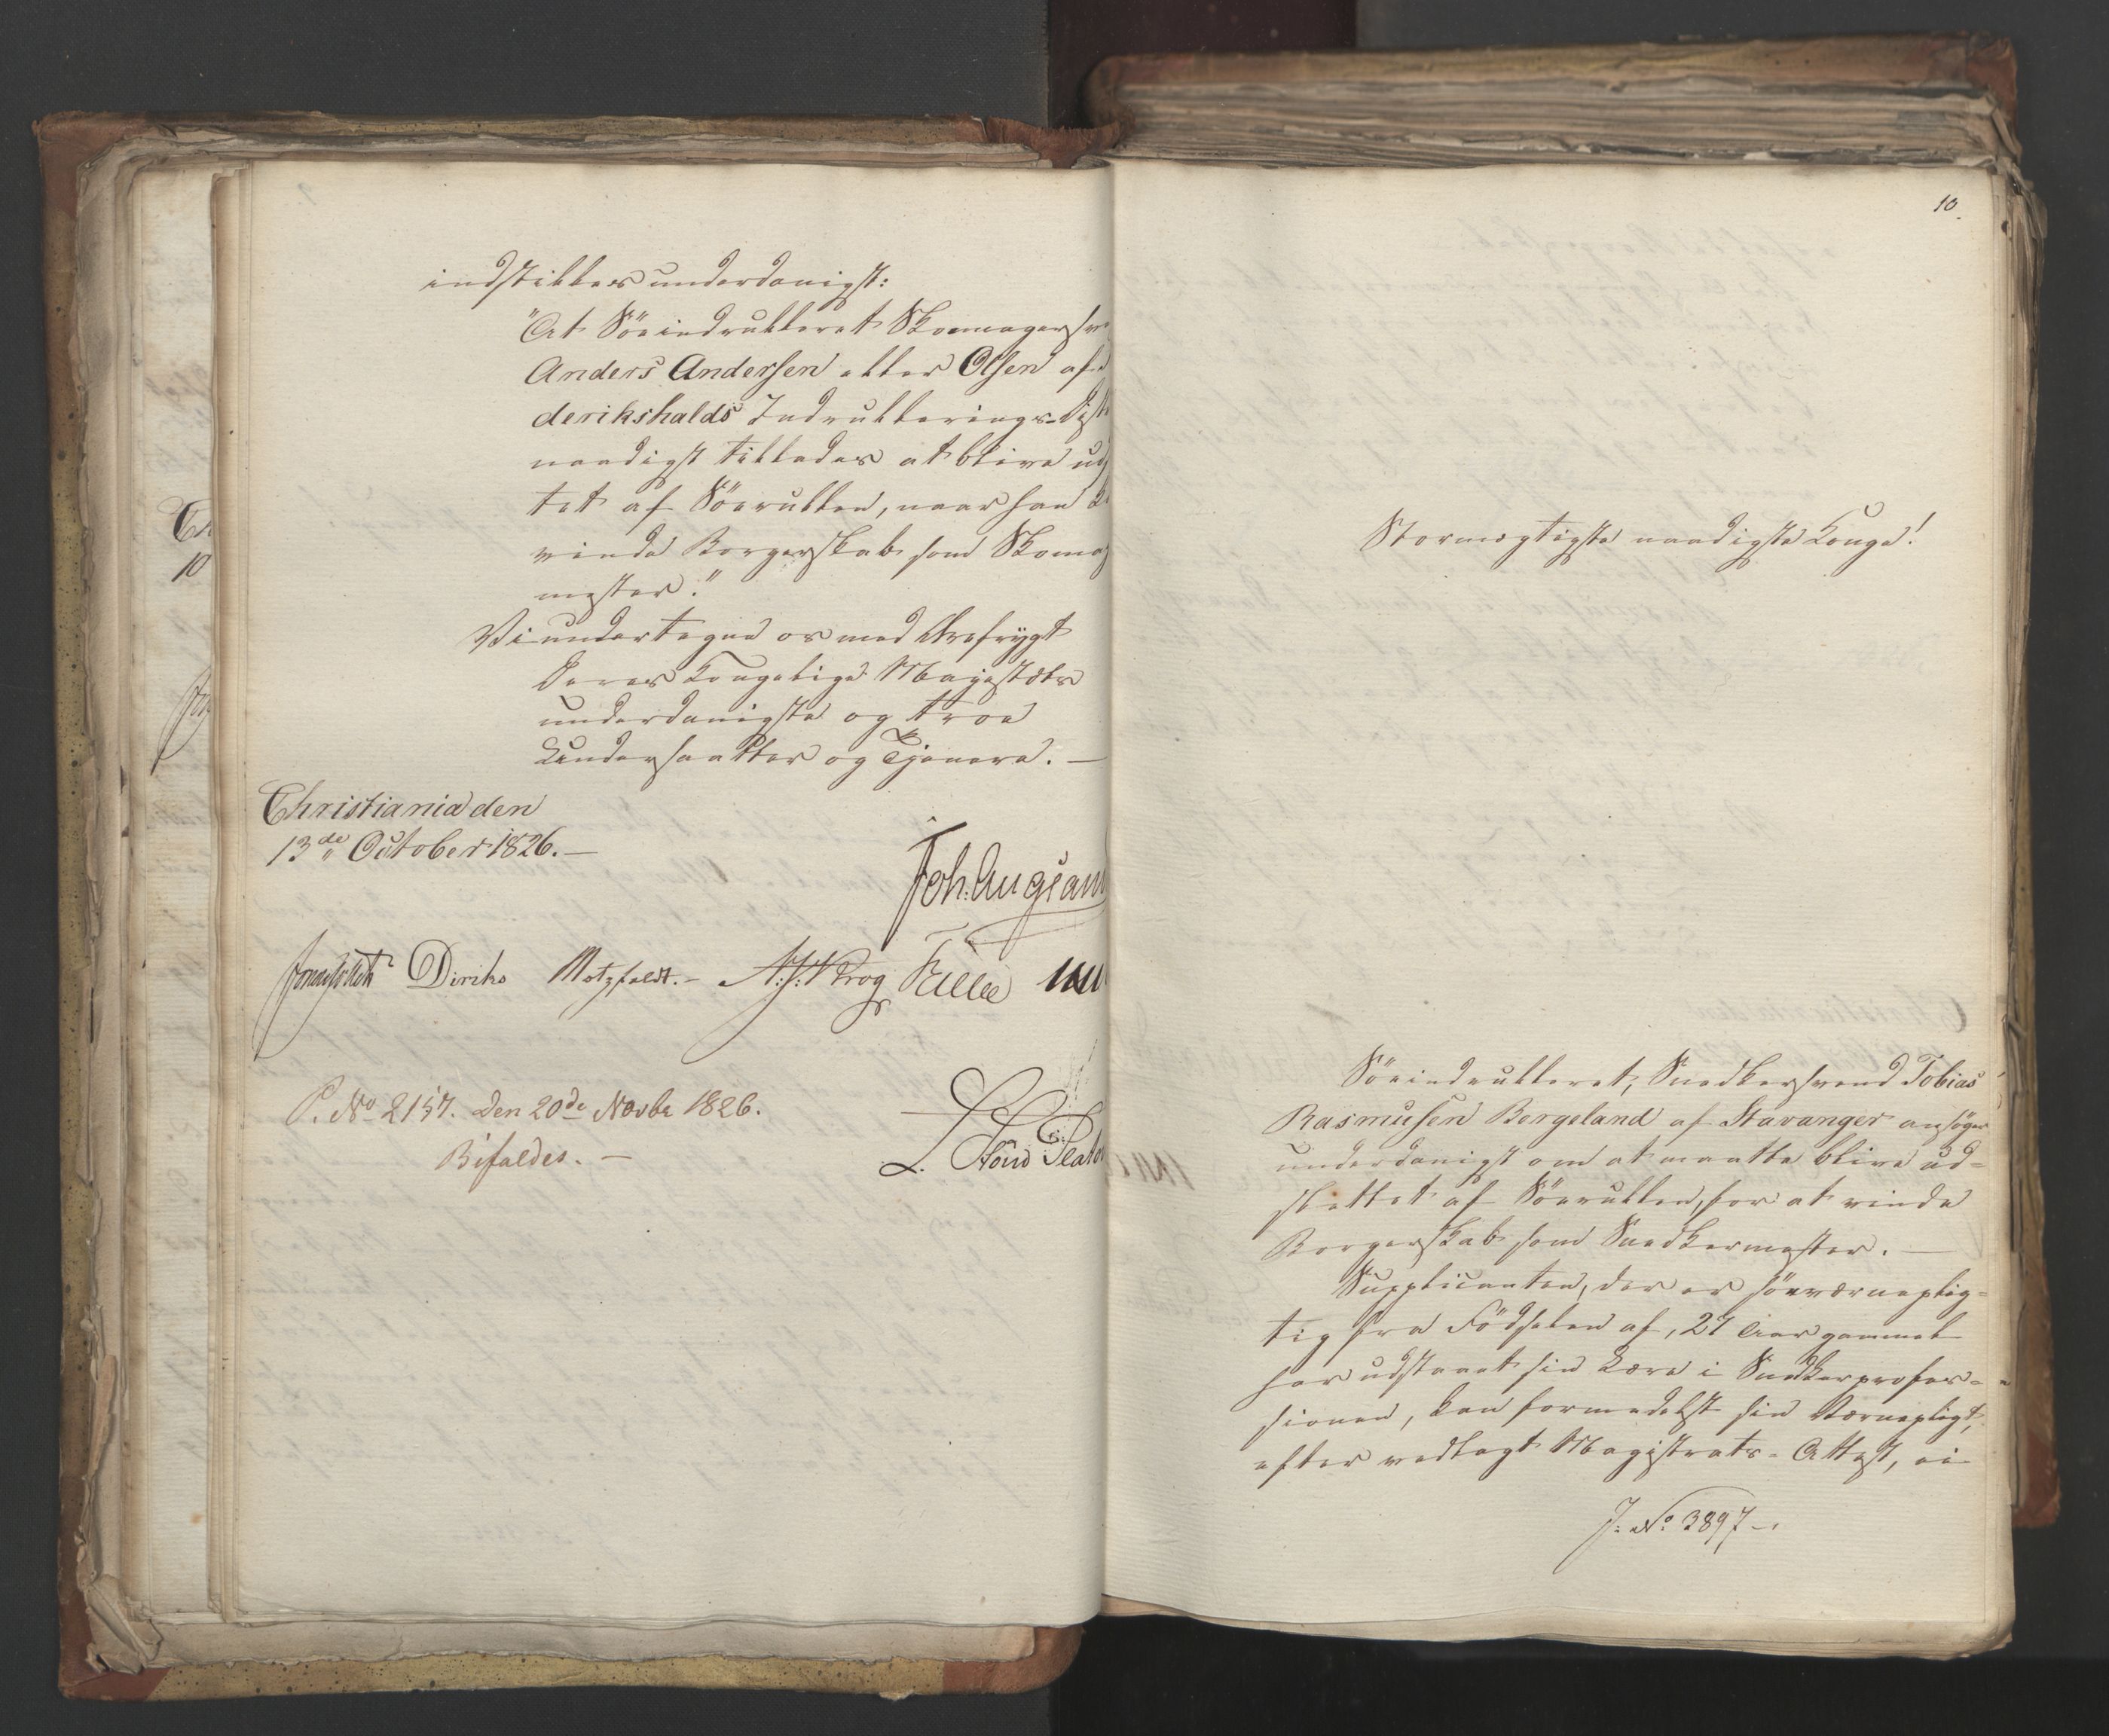 indstilles underdanigst:
"At Søeindrulleret Skomagersve
Anders Andersen eller Olsen af
derikshalds Indrullerings-Dist
naadigst tillades at blive ud
tet af Søerullen, naar han
vinde Borgerskab som Skomag
mester."
Vi undertegne os med Ærefrygt
Deres Kongelige Majestæts
underdanigste og troe
Undersaatter og Tjenere. —
Christiania den
13de October 1826. —
Joh. Aug: San
Diriks Motzfeldt. – Krog Fasting
P. No 2157. den 20de Novbr 1826.
Bifaldes. —
L.
10.
Stormægtigste naadigste Konge!
Søeindrulleret, Snedkersvend Tobias
Rasmusen Bergeland af Stavanger ansøger
underdanigst om at maatte blive ud-
slettet af Søerullen, for at vinde
Borgerskab som Snedkermester. —
Supplicanten, der er søeværneplig-
tig fra Fødselen af, 27 Aar gammel
har udstaaet sin Lære i Snedkerprofes-
sionen, kan formedelst sin Værnepligt,
efter vedlagt Magistrats-Attest, ei
J: No: 3897 –.